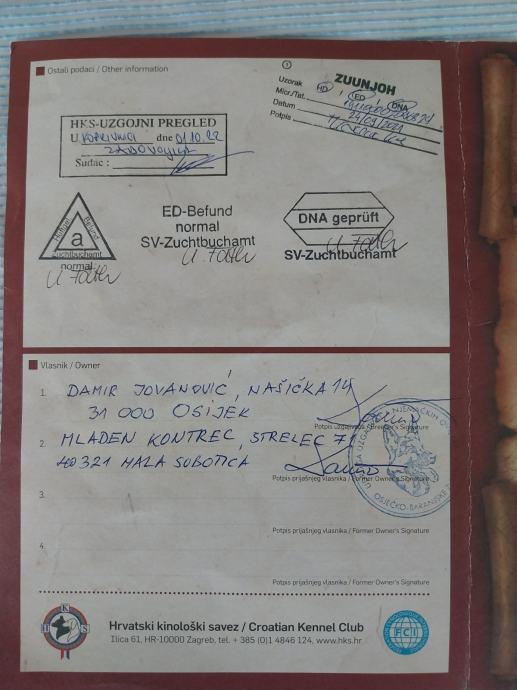 Ostali podaci / Other information
ZUUNJOH
Uzorak HD, ED DNA
Micr./Tat.
Datum 24/09/2021
Potpis
HKS-UZGOJNI PREGLED
U KOPRIVNICI dne 01.10.22
ZADOVOLJILA
Sudac :
a
Zuchtbuchamt
normal
ED-Befund
normal
SV-Zuchtbuchamt
DNA geprüft
SV-Zuchtbuchamt
Vlasnik / Owner
1. DAMIR JOVANOVIĆ, NAŠIČKA 14
31 000 OSIJEK
Potpis uzgajivača / Breeder's Signature
2. MLADEN KONTREC, STRELEC 71
40321 MALA SUBOTICA
Potpis prijašnjeg vlasnika / Former Owner's Signature
3.
Potpis prijašnjeg vlasnika / Former Owner's Signature
4.
Potpis prijašnjeg vlasnika / Former Owner's Signature
HKS
Hrvatski kinološki savez / Croatian Kennel Club
Ilica 61, HR-10000 Zagreb, tel. + 385 (0)1 4846 124, www.hks.hr
FCI